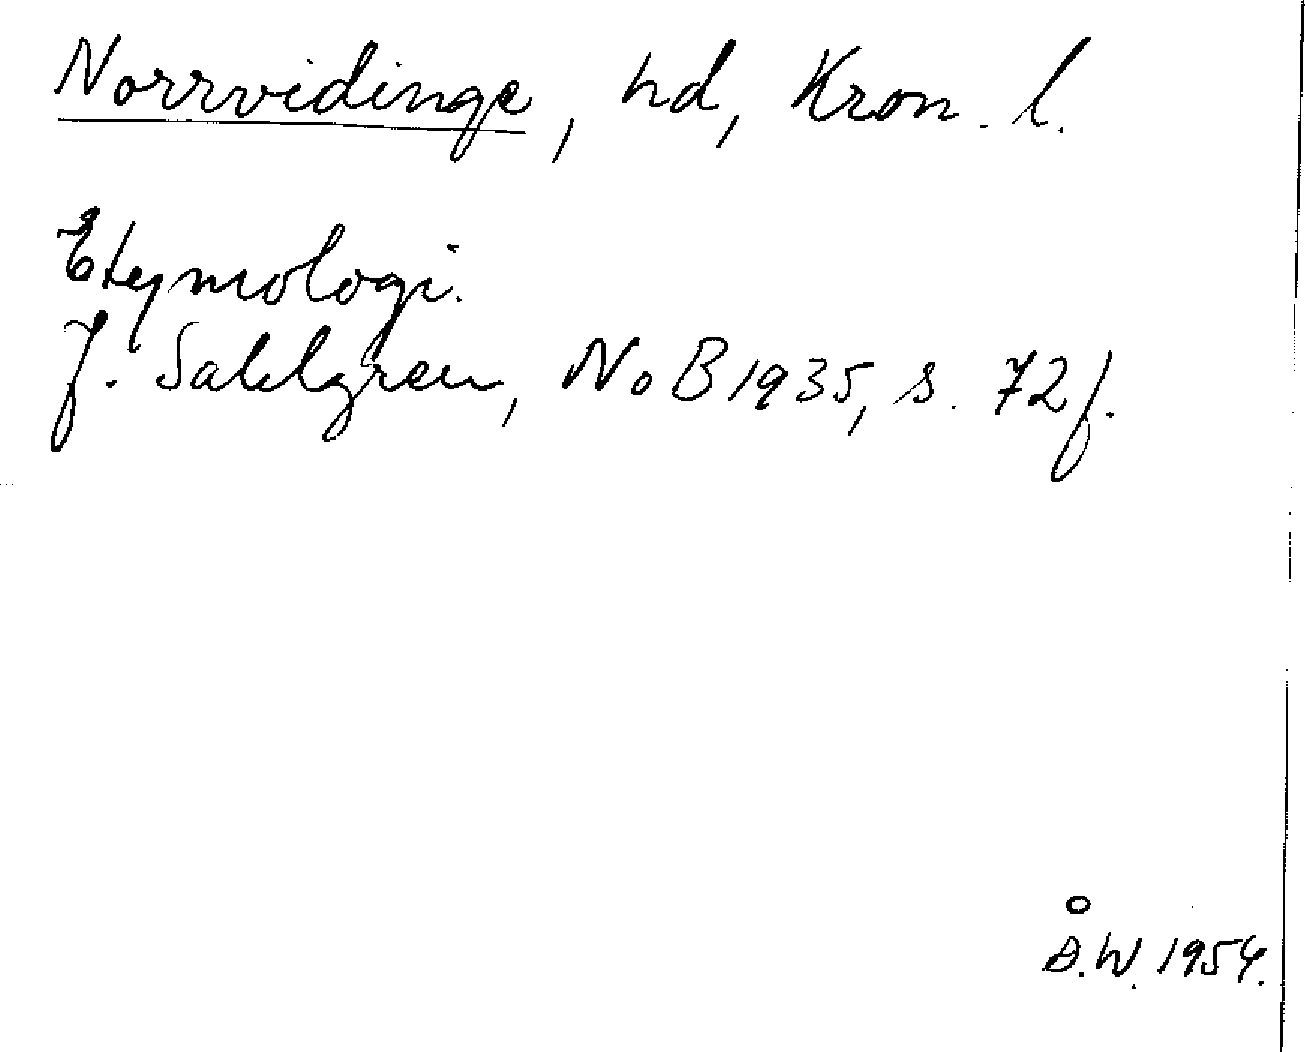 Norrvidinge, hd, Kron. l.
Etymologi.
J. Sahlgren, NoB 1935, s. 72 f.
Å.W. 1954.